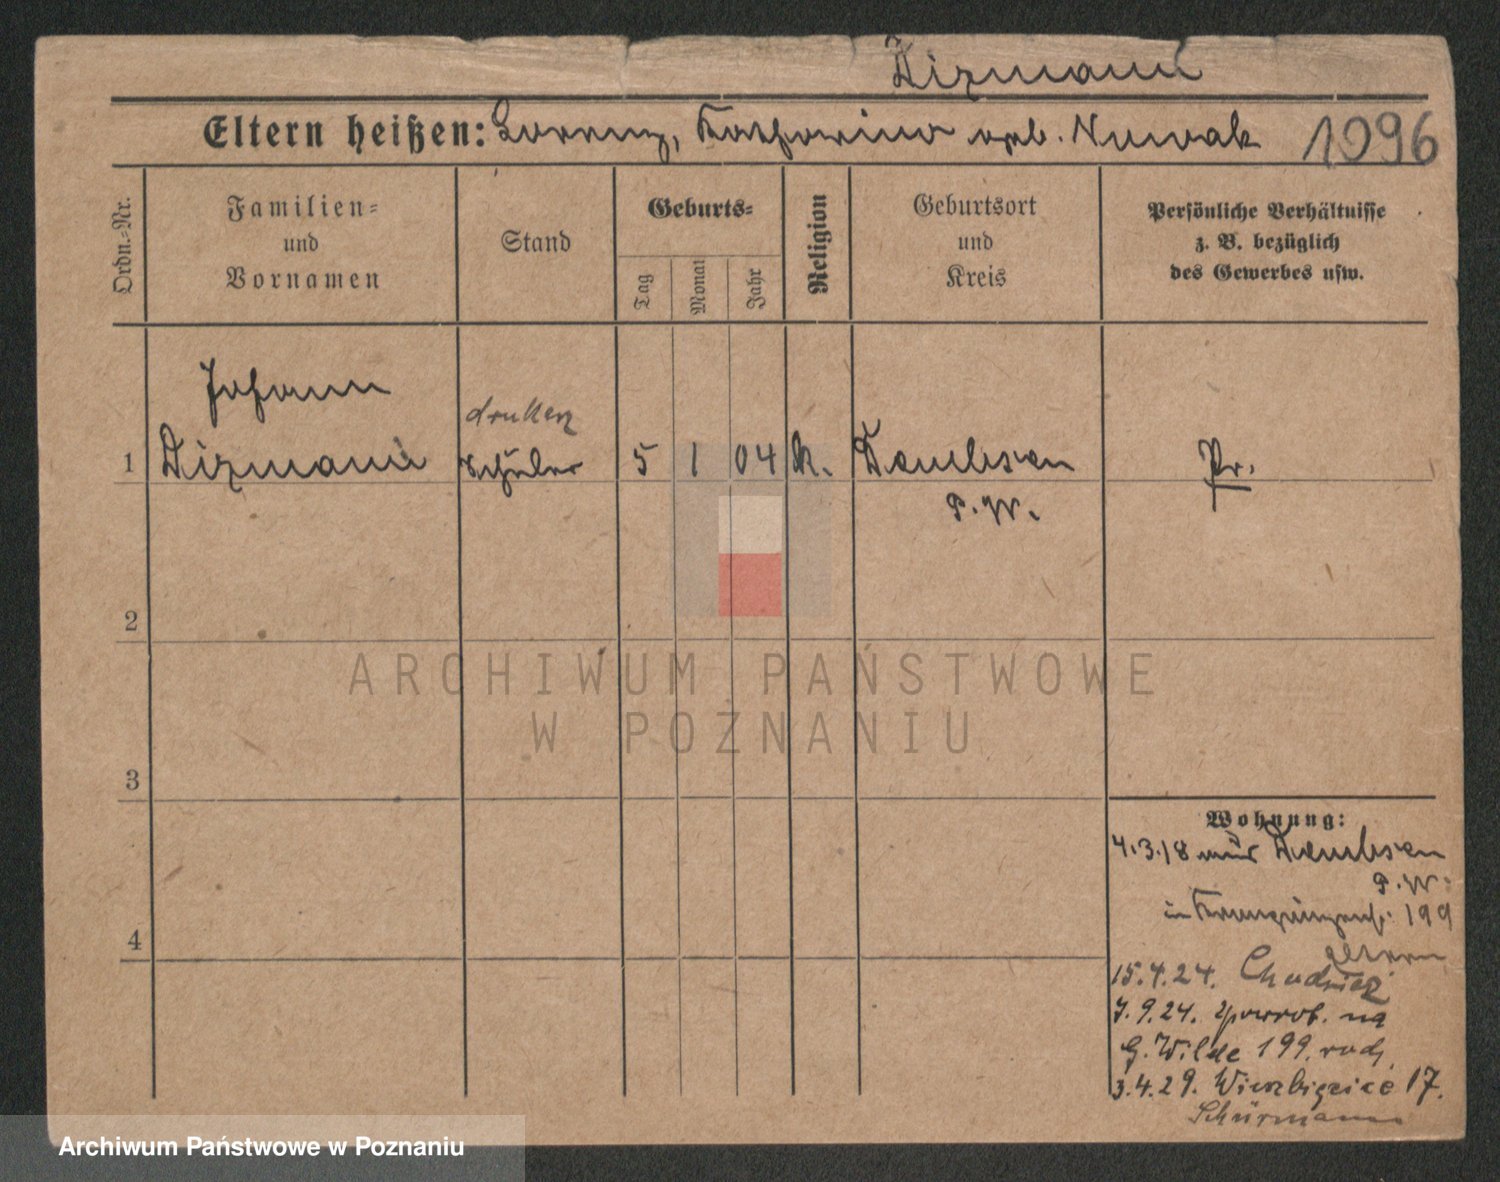 Dirmann
Eltern heißen: Lorenz, Katharina geb. Nowak 1096
Ordn.-Nr.
Familien-
und
Vornamen
Stand
Geburts-
Tag
Monat
Jahr
Religion
Geburtsort
und
Kreis
Persönliche Verhältnisse
z. B. bezüglich
des Gewerbes usw.
Johann
1 Schüler 5 1 04 k. Dembsen Pr.
P. W.
2
ARCHIWUM PAŃSTWOWE
W POZNANIU
3
4
Wohnung:
4.3.18 aus Dembsen
P. W.
in Kronprinzenstr. 199
Eltern
15.4.24. Chodzież
7.9.24. powrót. na
G. Wilde 199. rodz.
3.4.29. Wierzbięcice 17.
Schürmann
Archiwum Państwowe w Poznaniu